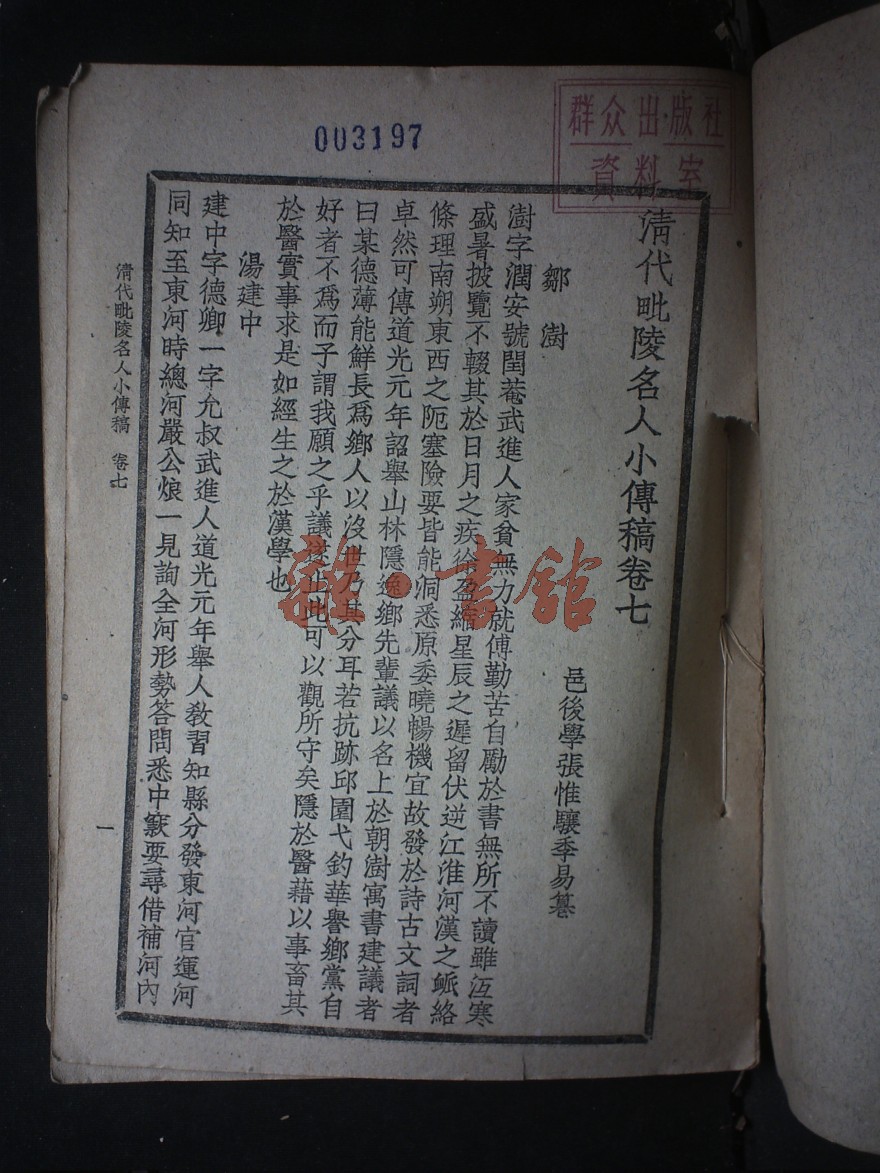 003197
群众出·版社
資料室
清代毗陵名人小傳稿卷七
邑後學張惟驤季易纂
鄒澍
澍字潤安號閏菴武進人家貧無力就傅勤苦自勵於書無所不讀雖沍寒
盛暑披覽不輟其於日月之疾徐盈縮星辰之遲留伏逆江淮河漢之脈絡
條理南朔東西之阨塞險要皆能洞悉原委曉暢機宜故發於詩古文詞者
卓然可傳道光元年詔舉山林隱逸鄉先輩議以名上於朝澍寓書建議者
曰某德薄能鮮長爲鄉人以沒世乃其分耳若抗跡邱園弋釣華譽鄉黨自
好者不爲而子謂我願之乎議遂止此可以觀所守矣隱於醫藉以事畜其
於醫實事求是如經生之於漢學也
湯建中
建中字德卿一字允叔武進人道光元年舉人教習知縣分發東河官運河
同知至東河時總河嚴公烺一見詢全河形勢答問悉中窾要尋借補河內
清代毗陵名人小傳稿 卷七
一
雜·書館